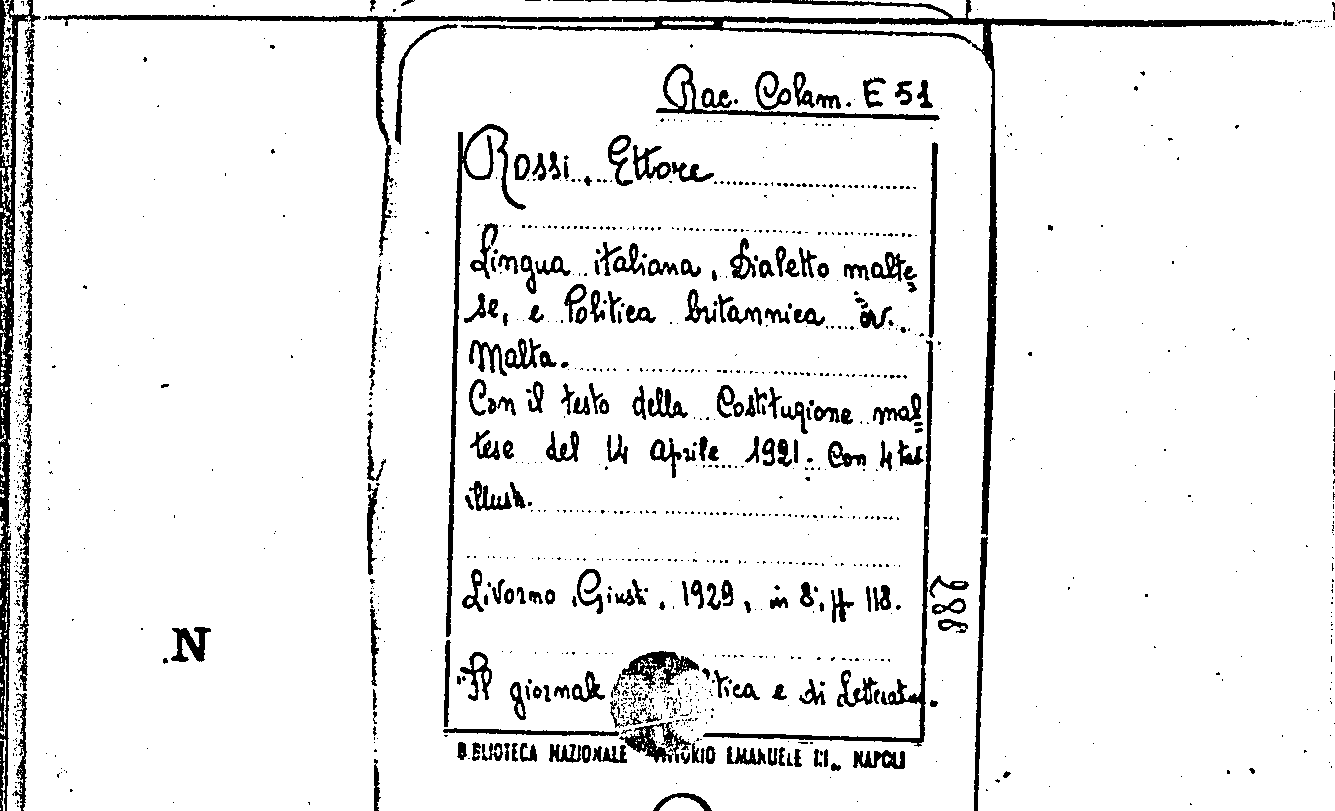 Rac. Colam. E 51
Rossi, Ettore
Lingua italiana, Dialetto malte
se, e Politica britannica a
Malta.
Con il testo della Costituzione mal
tese del 14 aprile 1921. Con 4 tav
illustr.
Livorno, Giusti, 1929, in 8°, pp 118.
288
"Il giornale tica e di Letteratur.
BIBLIOTECA NAZIONALE VITTORIO EMANUELE III„ NAPOLI
N